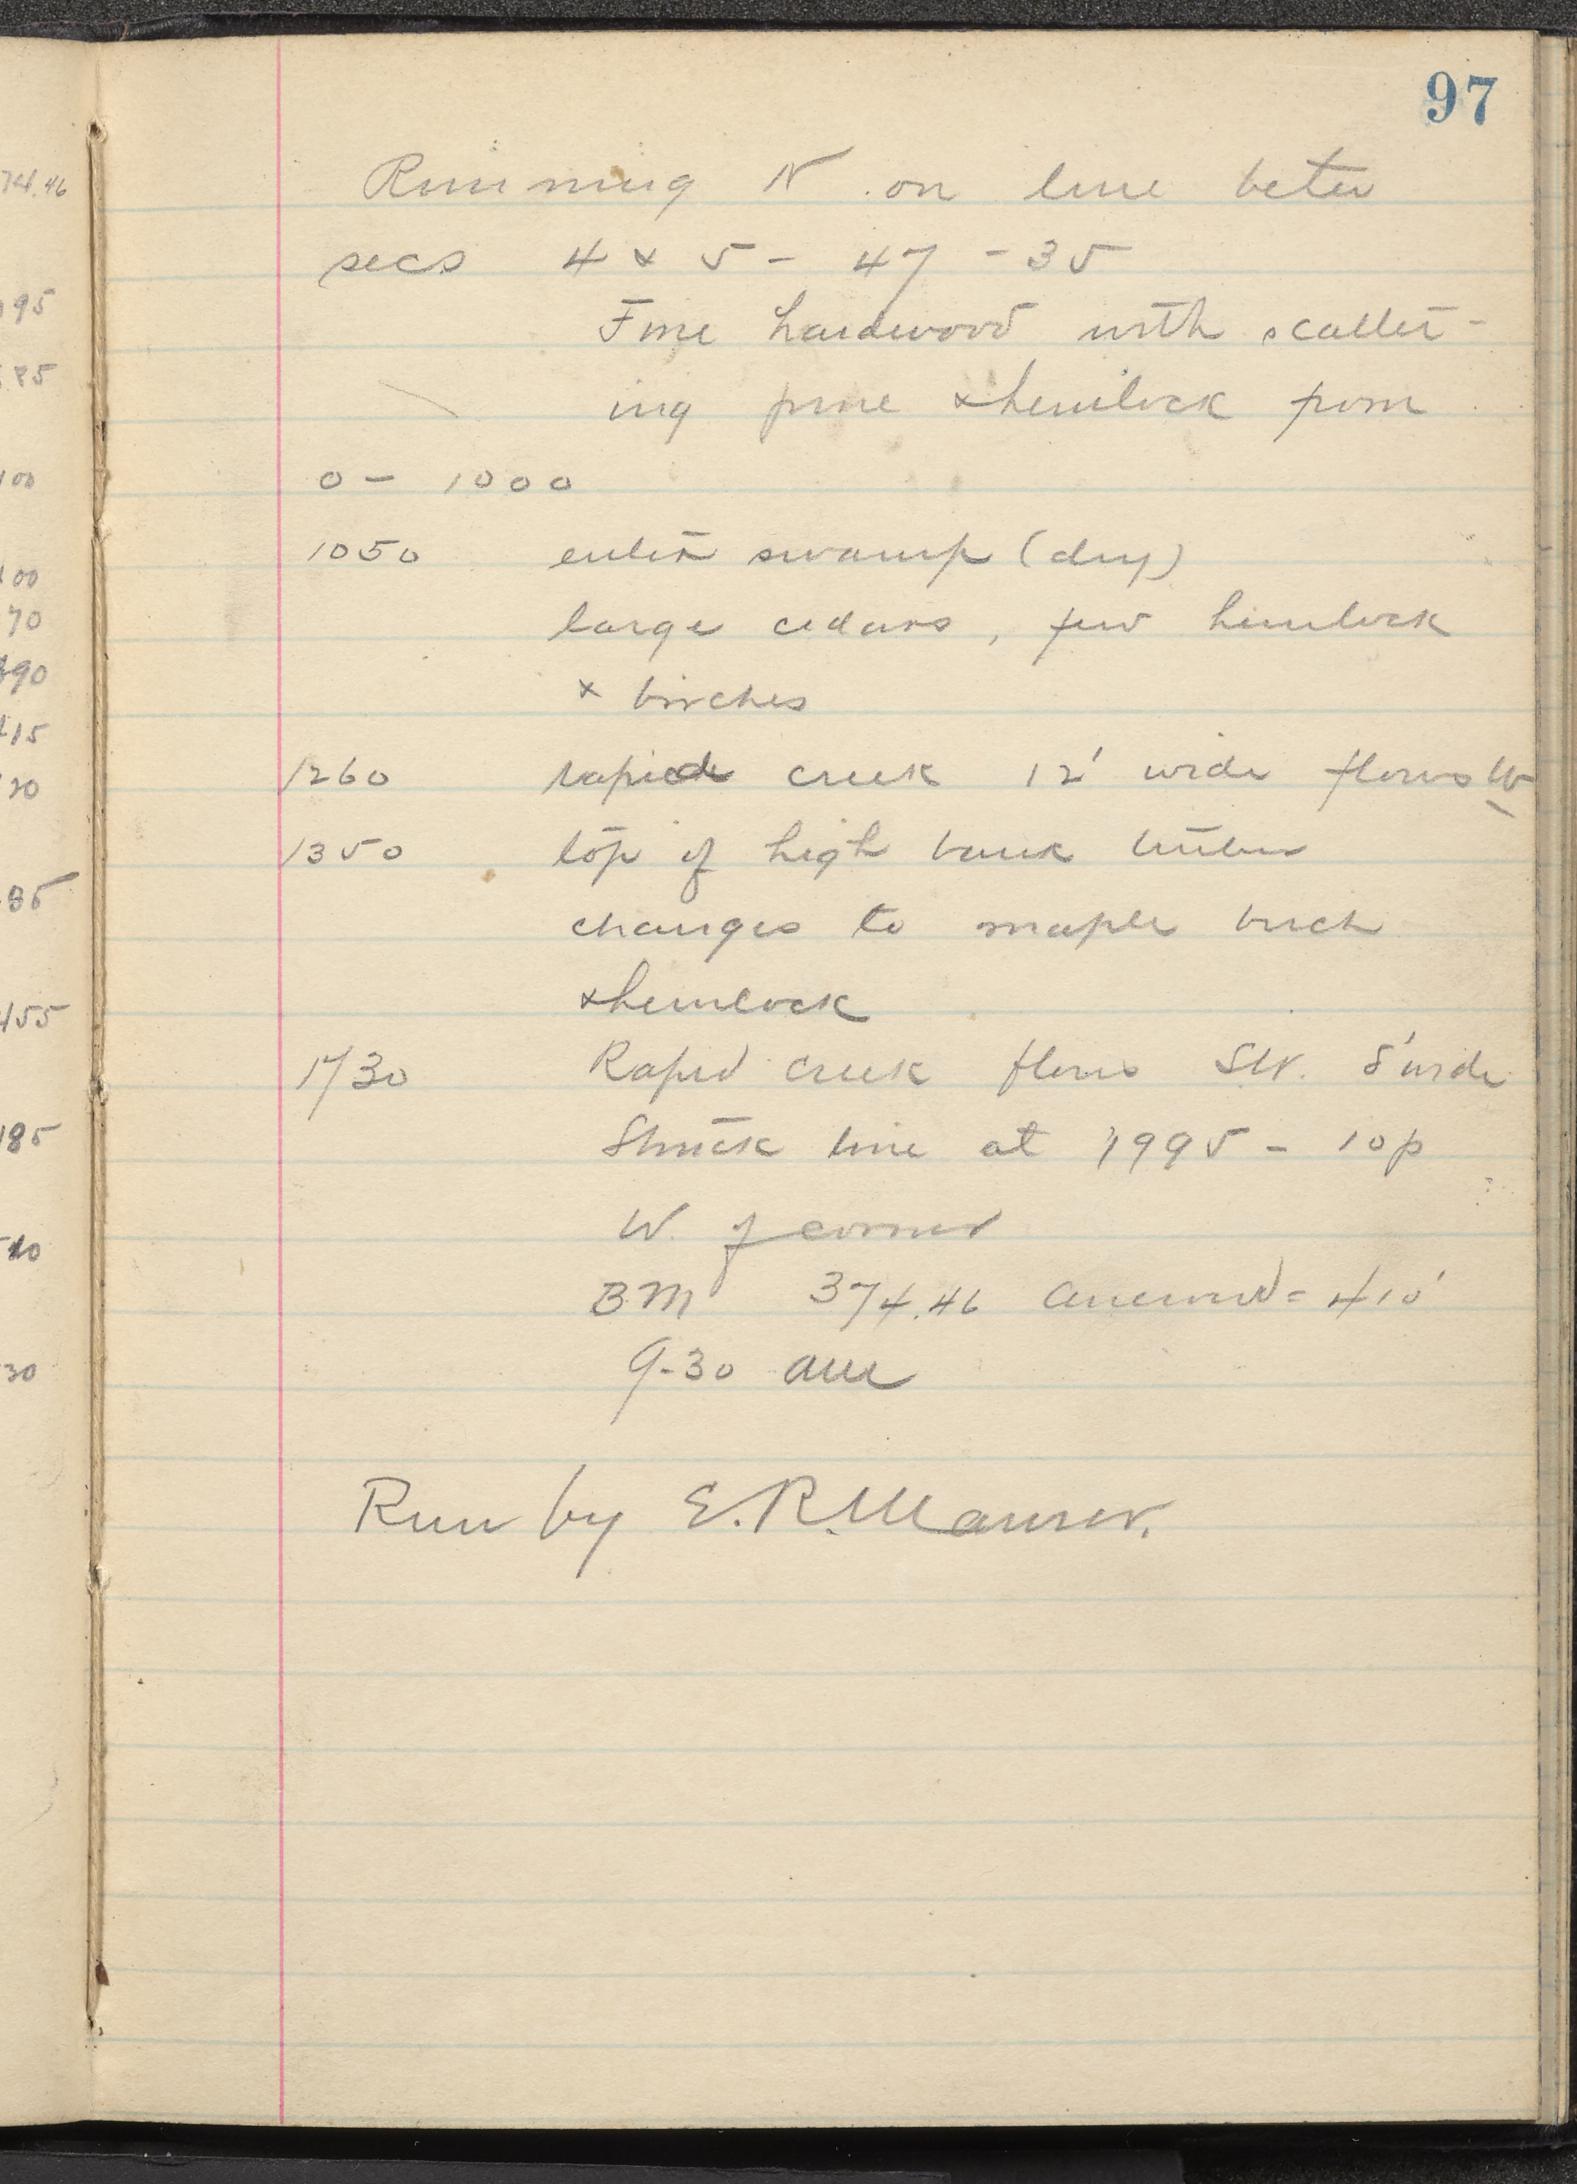 97
Running N. on line betw
secs 4 & 5 - 47 - 35
Fine hardwood with scatter-
ing pine & hemlock from
0 - 1000
1050 enter swamp (dry)
large cedars, few hemlock
& birches
1260 rapid creek 12' wide flows W
1350 top of high bank timber
changes to maple birch
& hemlock
1730 Rapid creek flows SW. 8' wide
Struck line at 1995 - 10p
W. of corner
BM 374.46 aneroid = 410'
9-30 am
Run by E. R. Maurer.
74.46
95
85
00
00
70
90
15
20
85
455
185
30